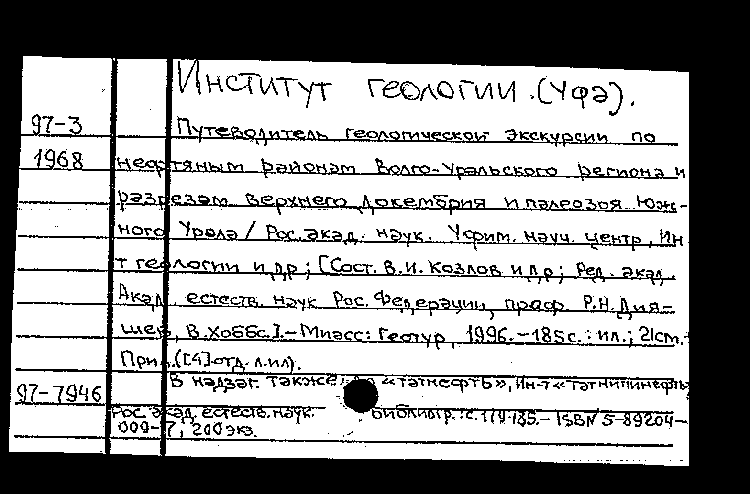 Институт геологии (Уфа).
97-3 Путеводитель геологической экскурсии по
1968 нефтяным районам Волго-Уральского региона и
разрезам верхнего докембрия и палеозоя Юж-
ного Урала / Рос. акад. наук. Уфим. науч. центр, Ин-
т геологии и др; [Сост. В.И. Козлов и др; Ред. акад.
Акад. естеств. наук Рос. Федерации, проф. Р.Н. Дия-
шев, В. Хоббс]. - Миасс: Геотур, 1996. - 185с. : ил.; 21см. +
При (4 отд. л. ил).
В надзаг. также: «Татнефть», Ин-т «ТатНИПИнефть»
97-7946
Рос. акад. естеств. наук. - Библиогр.: с. 179-185. - ISBN 5-89204-
009-7; 200 экз.